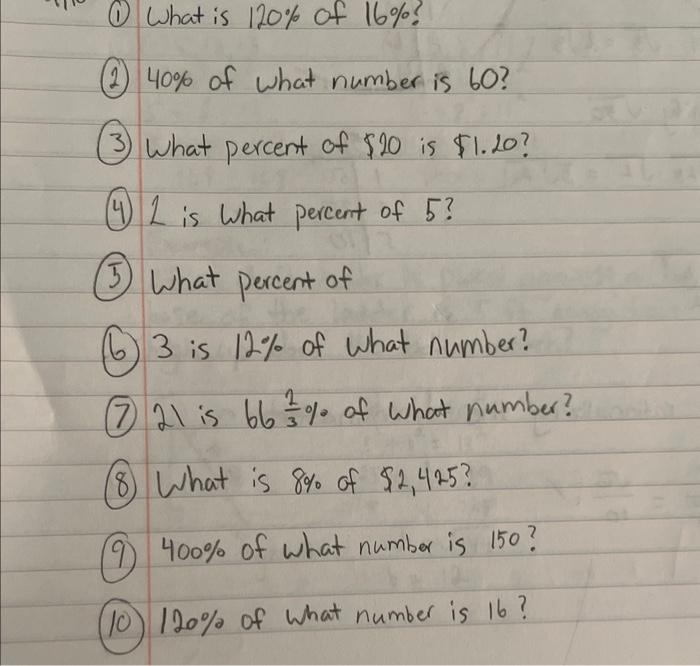 ① What is 120% of 16%?
② 40% of what number is 60?
③ What percent of $20 is $1.20?
④ 2 is what percent of 5?
⑤ What percent of
⑥ 3 is 12% of what number?
⑦ 21 is 66 2/3% of what number?
⑧ What is 8% of $2,425?
⑨ 400% of what number is 150?
⑩ 120% of what number is 16?